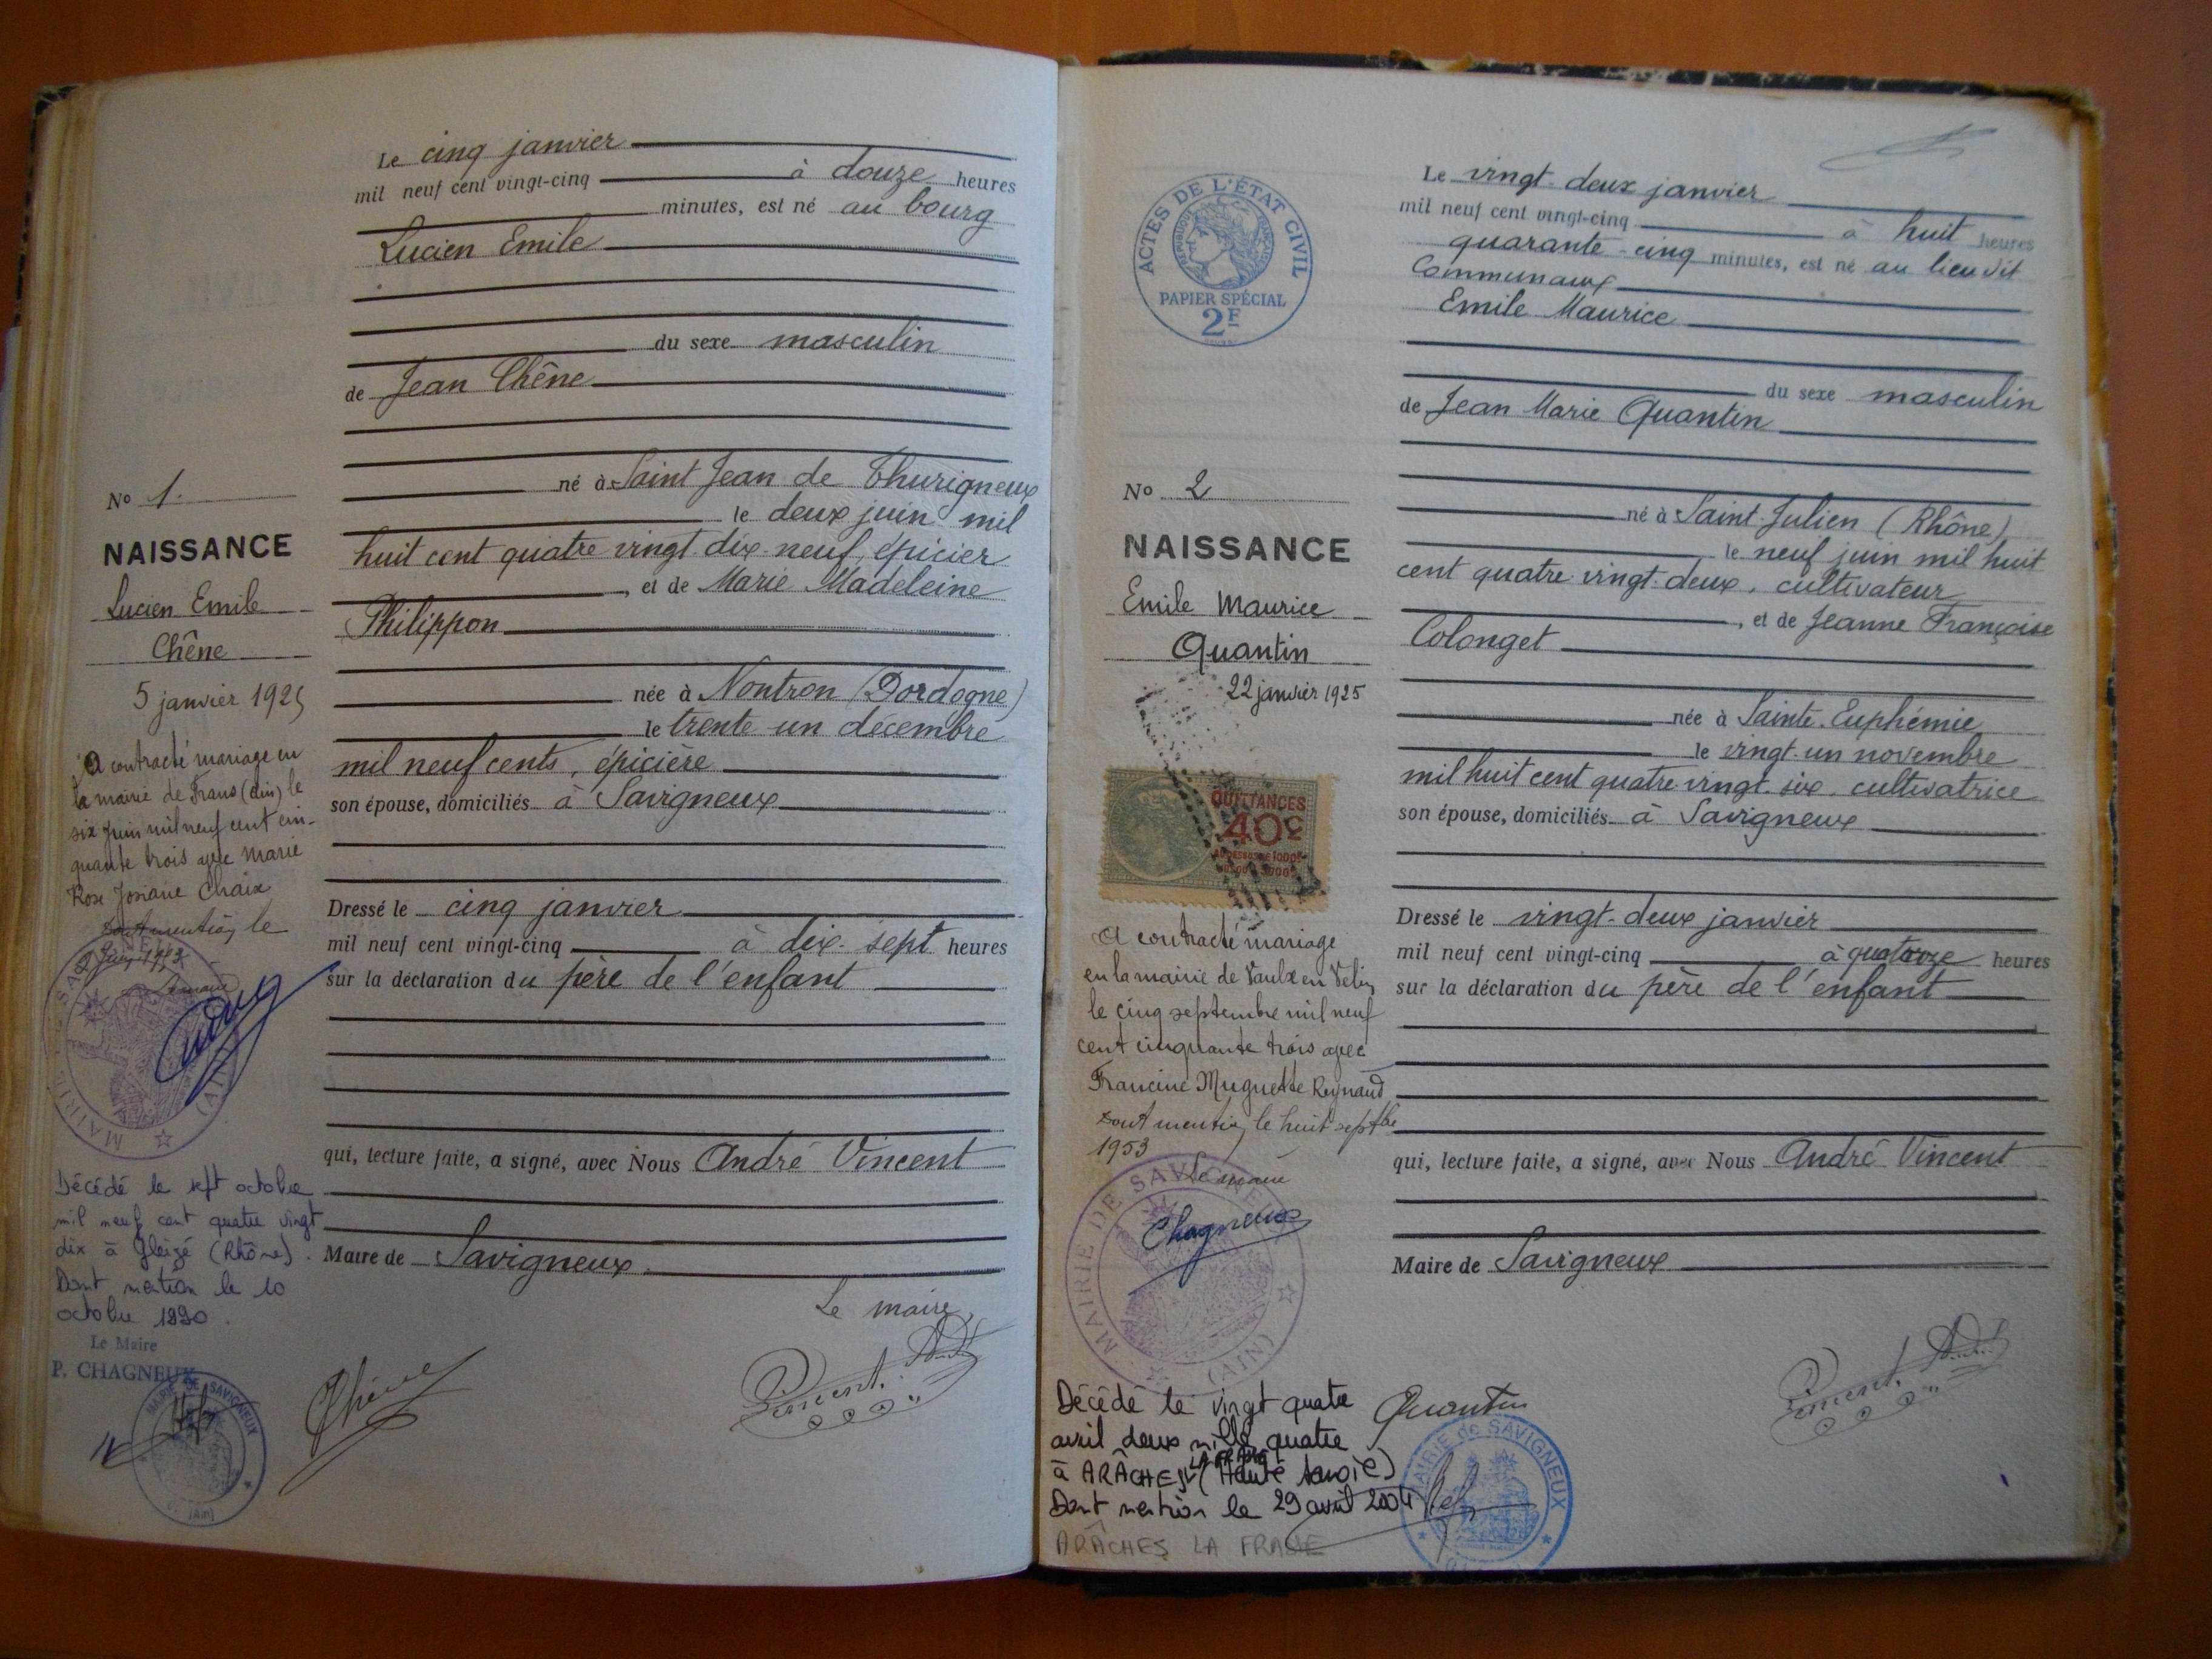 Le cinq janvier
mil neuf cent vingt-cinq à douze heures
minutes, est né au bourg
Lucien Emile
du sexe masculin
de Jean Chêne
né à Saint Jean de Thurigneux
le deux juin mil
huit cent quatre vingt dix-neuf, épicier
, et de Marie Madeleine
Philippon
née à Nontron (Dordogne)
le trente un décembre
mil neuf cents, épicière
son épouse, domiciliés à Savigneux
Dressé le cinq janvier
mil neuf cent vingt-cinq à dix-sept heures
sur la déclaration du père de l'enfant
qui, lecture faite, a signé, avec Nous André Vincent
Maire de Savigneux
Le maire,
Vincent. Adré
Chêne
No 1.
NAISSANCE
Lucien Emile
Chêne
5 janvier 1925
A contracté mariage en
la mairie de Frans (Ain) le
six juin mil neuf cent cin-
quante trois avec Marie
Rose Josiane Chaix
Dont mention, le
juin 1953
Le maire
MAIRIE DE SAVIGNEUX (AIN)
Décédé le sept octobre
mil neuf cent quatre vingt
dix à Gleizé (Rhône).
Dont mention le 10
octobre 1990.
Le Maire
P. CHAGNEUX
MAIRIE DE SAVIGNEUX
(Ain)
ACTES DE L'ÉTAT CIVIL
RÉPUBLIQUE FRANÇAISE
PAPIER SPÉCIAL
2F
Le vingt-deux janvier
mil neuf cent vingt-cinq à huit heures
quarante-cinq minutes, est né au lieu dit
Communaux
Emile Maurice
du sexe masculin
de Jean Marie Quantin
né à Saint-Julien (Rhône)
le neuf juin mil huit
cent quatre-vingt-deux, cultivateur
, et de Jeanne Françoise
Colonget
née à Sainte-Euphémie
le vingt-un novembre
mil huit cent quatre vingt-six, cultivatrice
son épouse, domiciliés à Savigneux
Dressé le vingt-deux janvier
mil neuf cent vingt-cinq à quatorze heures
sur la déclaration du père de l'enfant
qui, lecture faite, a signé, avec Nous André Vincent
Maire de Savigneux
Quantin
Vincent. Adré
No 2
NAISSANCE
Emile Maurice
Quantin
22 janvier 1925
QUITTANCES
40c
A contracté mariage
en la mairie de Vaulx en Velin
le cinq septembre mil neuf
cent cinquante trois avec
Francine Muguette Reynaud
Dont mention, le huit septbre
1953
Le maire
Chagneux
MAIRIE DE SAVIGNEUX (AIN)
Décédé le vingt quatre
avril deux mille quatre
LA FRASSE
à ARÂCHES (Haute Savoie)
Dont mention le 29 avril 2004
ARÂCHES LA FRASSE
MAIRIE de SAVIGNEUX